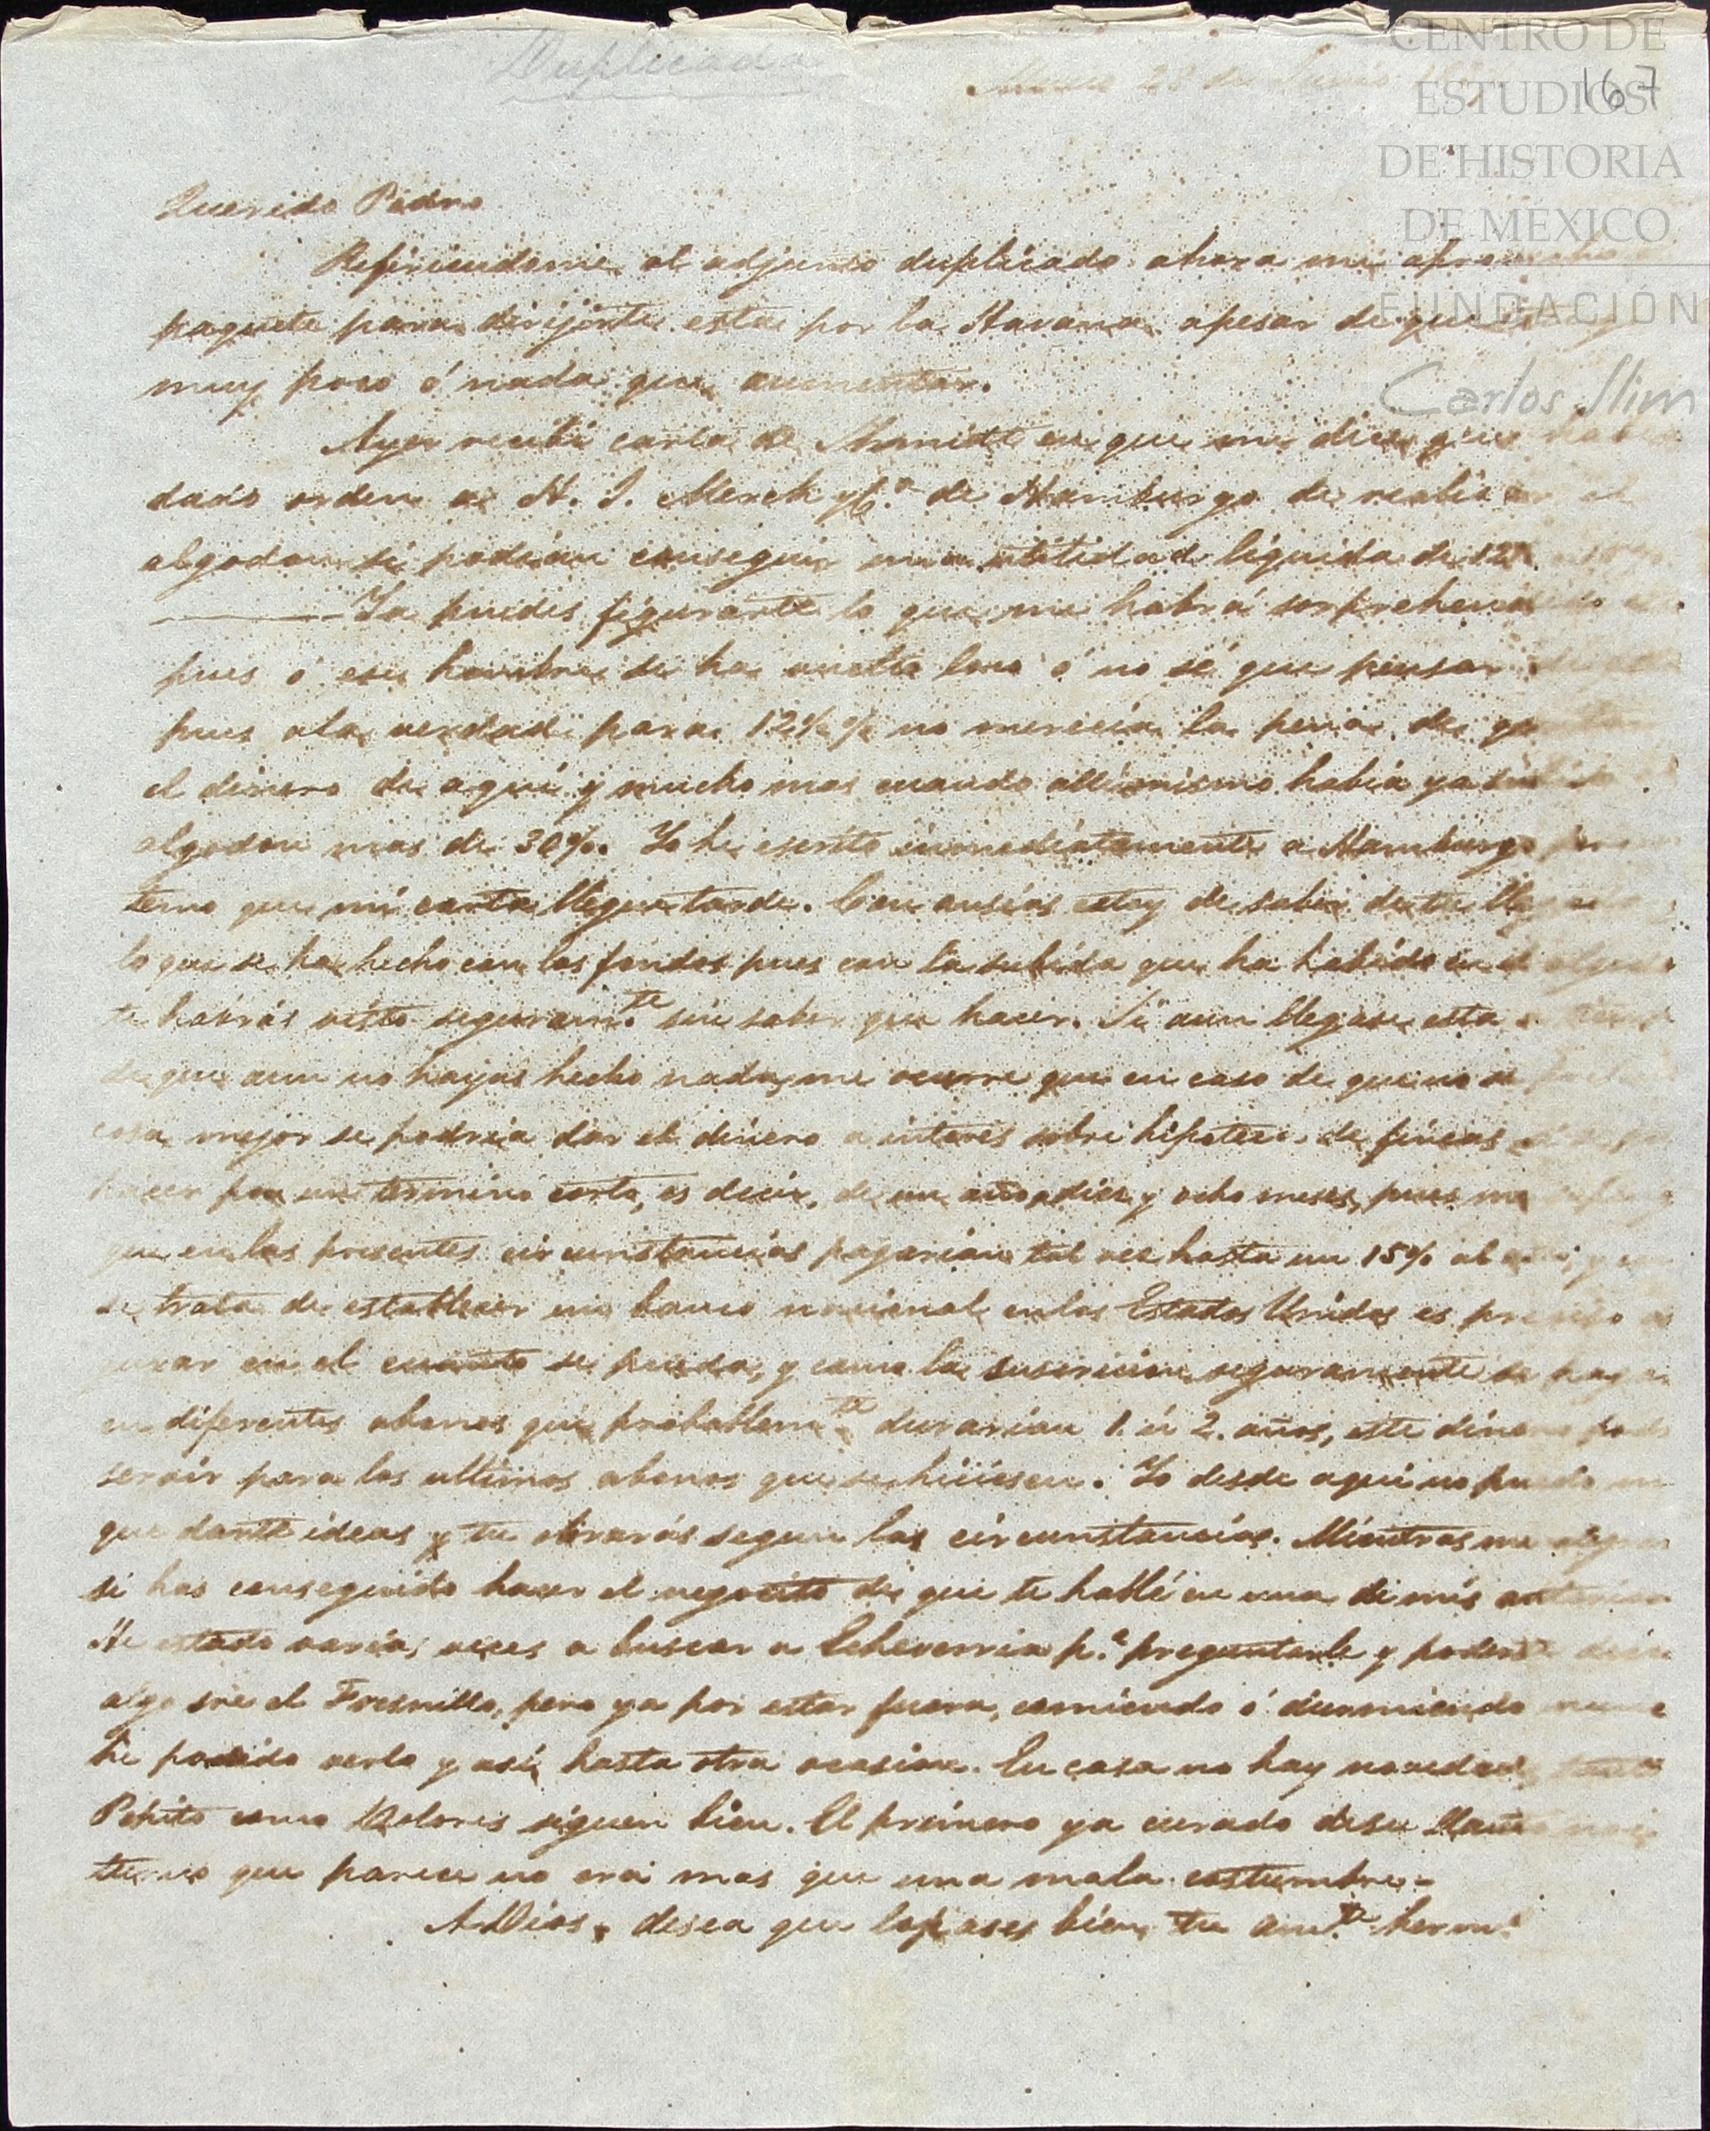 CENTRO DE
ESTUDIOS
DE HISTORIA
DE MÉXICO
FUNDACIÓN
Carlos Slim
167
Duplicada
28 de Junio
Querido Pedro
Refiriendome al adjunto duplicado ahora me aprovecho
paquete para dirijirte esta por la Havana apesar de que
muy poco ó nada que aumentar.
Ayer recibi carta de Schmidt en que me dice que habia
dado orden a H. J. Merck y Cª de Hamburgo de realizar el
algodon si podian conseguir una utilidad liquida de 12½
Ya puedes figurarte lo que me habrá sorprehendido
pues ó ese hombre se ha vuelto loco ó no sé que pensar
pues ala verdad para 12½ % no merecia la pena de
el dinero de aqui y mucho mas cuando alli mismo habia ya subido
algodon mas de 30%. Yo he escrito inmediatamente a Hamburgo pero
temo que mi carta llegue tarde. Con ansias estoy de saber de tu llegada
lo que se ha hecho con los fondos pues con la subida que ha habido en el algodon
te habrás visto seguramte sin saber que hacer. Si aun llegase esta
de que aun no hayas hecho nada, me ocurre que en caso de que no se
cosa mejor se podria dar el dinero a interes sobre hipoteca de fincas
hacer por un termino corto, es decir, de un año a diez y ocho meses, pues me
que en las presentes circunstancias pagarian tal vez hasta un 15% al año; y
se trata de establecer un banco nacional en los Estados Unidos es preciso
en el cuanto se pueda, y como la suscricion seguramente se pagará
en diferentes abonos que probablemte durarian 1 ú 2 años, este dinero
servir para los ultimos abonos que se hiciesen. Yo desde aqui no puedo
que darte ideas y tu obrarás segun las circunstancias. Mientras me alegraré
si has conseguido hacer el negocito de que te hablé en una de mis anteriores
He estado varias veces a buscar a Echeverria p.ª preguntarle y poderte decir
algo sre el Fresnillo, pero ya por estar fuera, comiendo ó durmiendo nunca
he podido verlo y asi, hasta otra ocasion. En casa no hay novedad, tanto
Pepito como Dolores siguen bien. El primero ya curado de su llanto
que parece no era mas que una mala costumbre.
A Dios, desea que lo pases bien, tu amte. herm.º